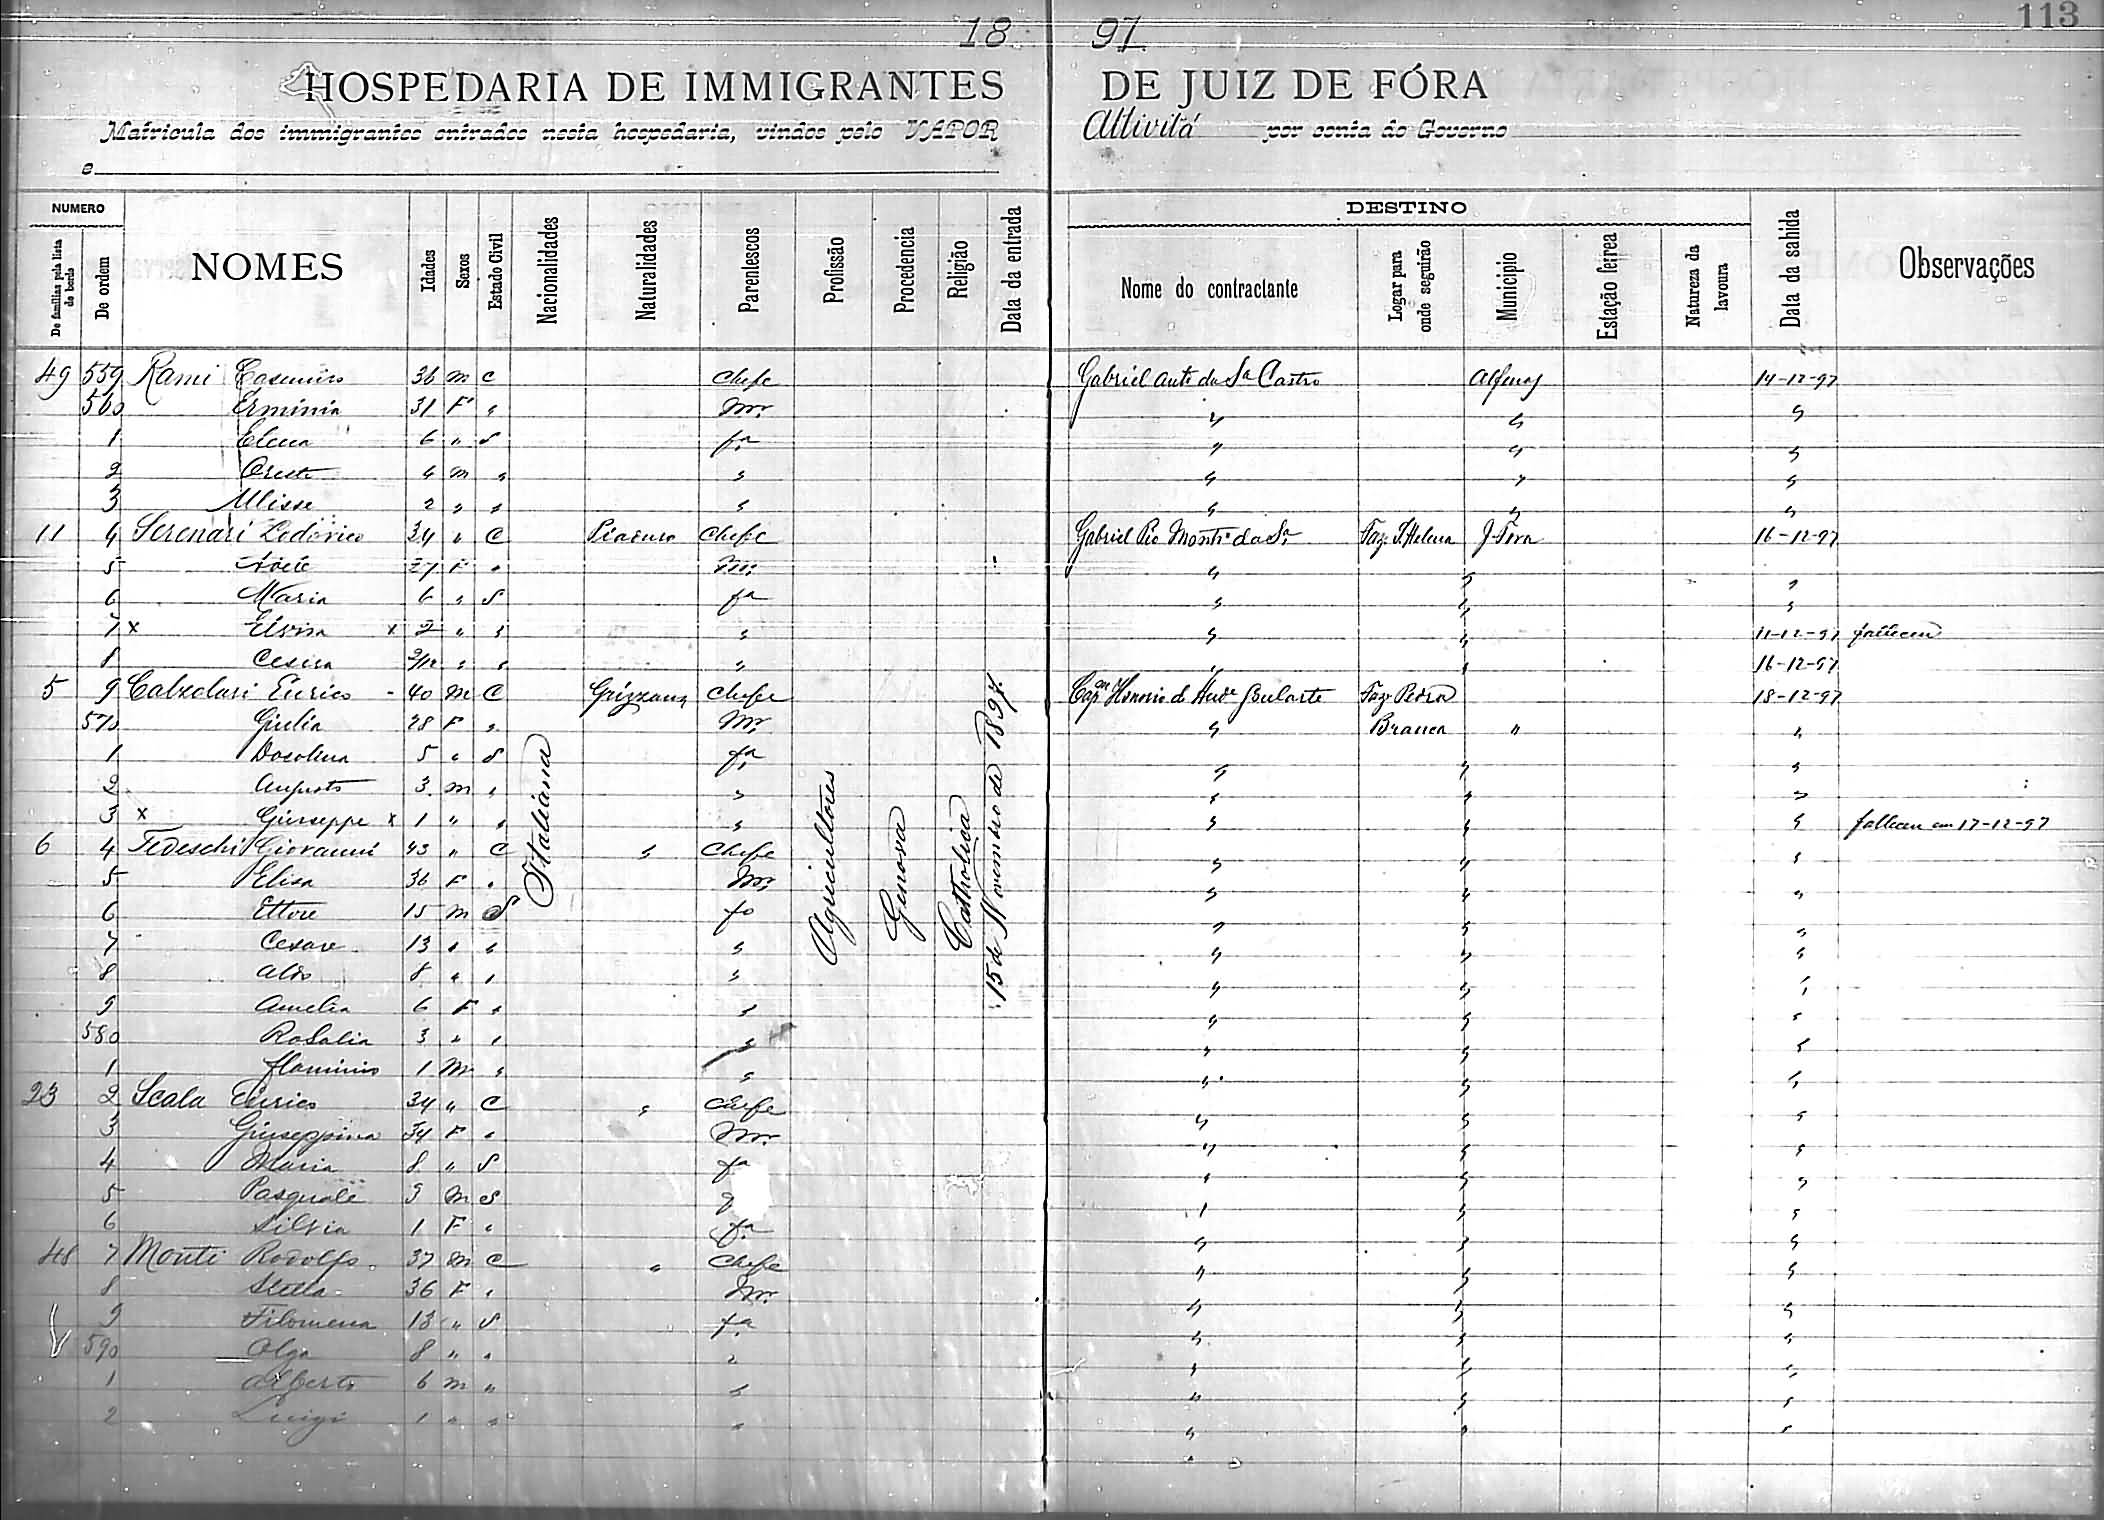 113
18 97
HOSPEDARIA DE IMMIGRANTES DE JUIZ DE FÓRA
Matricula dos immigrantes entrados nesta hospedaria, vindos pelo VAPOR Attivitá por conta do Governo
e
NUMERO DESTINO
De familias pela lista de bordo De ordem NOMES Idades Sexos Estado Civil Nacionalidades Naturalidades Parentescos Profissão Procedencia Religião Data da entrada Nome do contractante Logar para onde seguirão Municipio Estação ferrea Natureza da lavoura Data da sahida Observações
49 559 Rami Casemiro 36 m C Chefe Gabriel Anto da Sa Castro Alfenas 14-12-97
560 Erminia 31 F " Mr " " "
1 Elena 6 " S fa " " "
2 Oreste 4 m " " " " "
3 Ulisse 2 " " " " " "
11 4 Serenari Lodovico 34 " C Chefe Gabriel Pio Monto da Sa Faz. Sta Helena J. Fora 16-12-97
5 27 F " Mr " " "
6 Maria 6 " S fa " " "
7 x Elvira x 2 " " " " " 11-12-97 falleceu
8 Cesira 2/12 " " " " " 16-12-97
5 9 Calzolari Enrico - 40 m C Grizzana Chefe Capm Honorio d Faz Pedra 18-12-97
570 Giulia 28 F " Mr " Branca " "
1 5 " S fa " " "
2 Augusto 3 m " " " " "
3 x Giuseppe x 1 " " " " " " falleceu em 17-12-97
6 4 Tedeschi Giovanni 43 " C " Chefe " " "
5 Elisa 36 F " Mr " " "
6 Ettore 15 m S fo " " "
7 Cesare 13 " " " " " "
8 Aldo 8 " " " " " "
9 Amelia 6 F " " " " "
580 Rosalia 3 " " " " " "
1 Flaminio 1 M " " " " "
23 2 Scala Enrico 34 " C " Chefe " " "
3 Giuseppina 34 F " Mr " " "
4 Maria 8 " S fa " " "
5 Pasquale 3 M S " " "
6 Silvia 1 F " fa " " "
48 7 Monti Rodolfo 37 m C " Chefe " " "
8 Stella 36 F " Mr " " "
9 Filomena 13 " S fa " " "
590 Olga 8 " " " " " "
1 Alberto 6 m " " " " "
2 Luigi 1 " " " " " "
Italiana
Agricultores
Genova
Catholica
15 de Novembro de 1897.